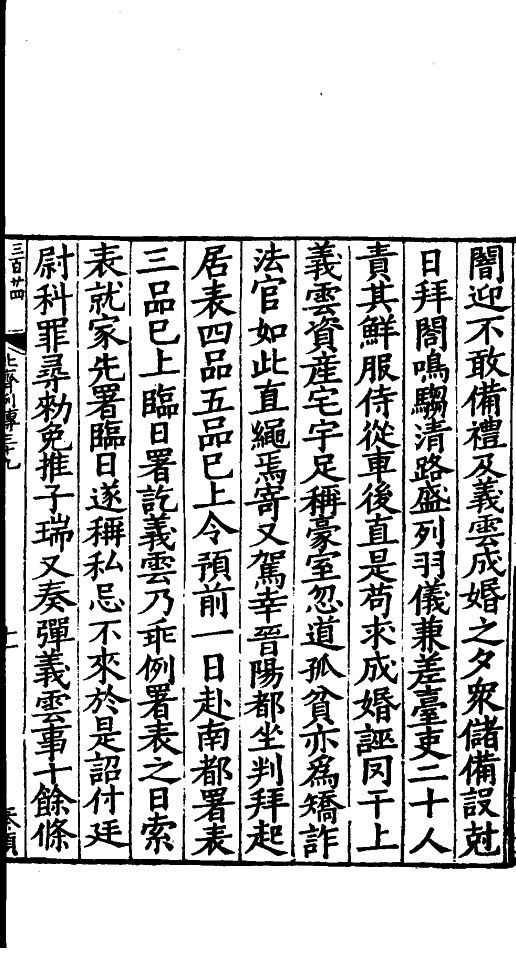 闇迎不敢備禮及義雲成婚之夕衆儲備設尅
日拜閤鳴騶清路盛列羽儀兼差臺吏二十人
責其鮮服侍從車後直是苟求成婚誣罔干上
義雲資産宅宇足稱豪室忽道孤貧亦爲矯詐
法官如此直繩焉寄又駕幸晉陽都坐判拜起
居表四品五品已上令預前一日赴南都署表
三品已上臨日署訖義雲乃乖例署表之日索
表就家先署臨日遂稱私忌不來於是詔付廷
尉科罪尋勑免推子瑞又奏彈義雲事十餘條
三百廿四
北齊列傳三十九
十一